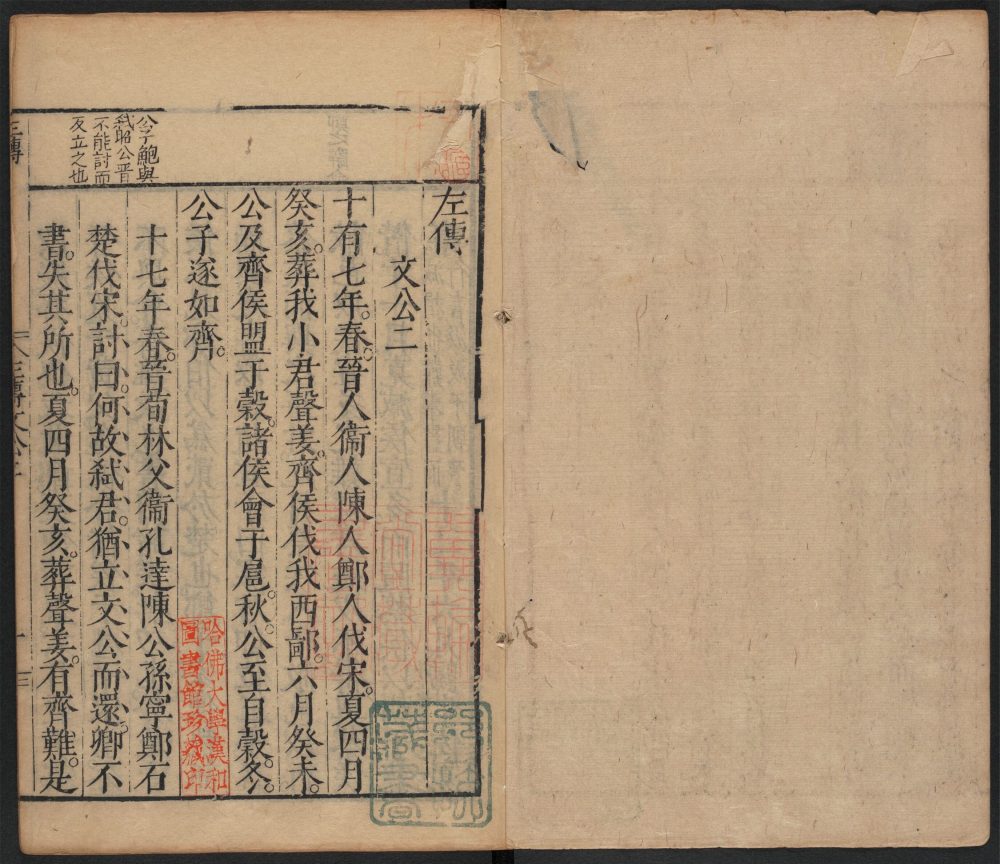 左傳
文公二
十有七年。春。晉人衞人陳人鄭人伐宋。夏四月
癸亥。葬我小君聲姜。齊侯伐我西鄙。六月癸未。
公及齊侯盟于穀。諸侯會于扈。秋。公至自穀。冬。
公子遂如齊。
十七年春。晉荀林父衞孔達陳公孫寧鄭石
楚伐宋。討曰。何故弒君。猶立文公而還。卿不
書。失其所也。夏四月癸亥。葬聲姜。有齊難。是
公子鮑與
弒昭公晉
不能討而
反立之也
哈佛大學漢和
圖書館珍藏印